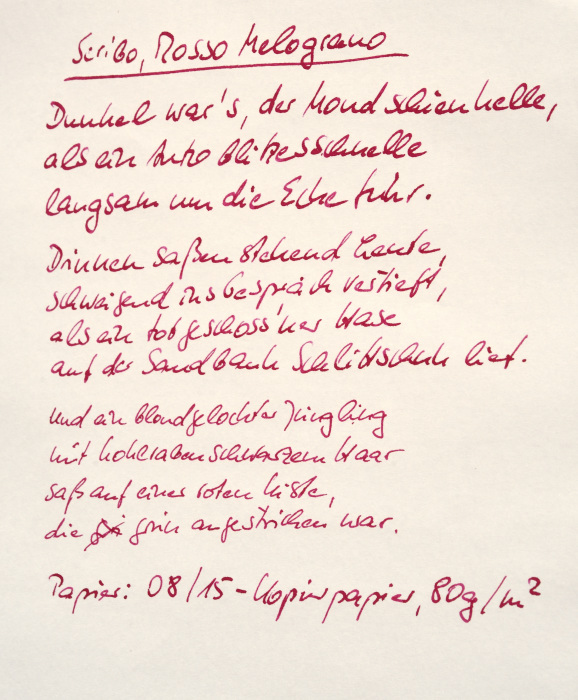 Scribo, Rosso Melograno
Dunkel war's, der Mond schien helle,
als ein Auto blitzesschnelle
langsam um die Ecke fuhr.
Drinnen saßen stehend Leute,
schweigend ins Gespräch vertieft,
als ein totgeschoss'ner Hase
auf der Sandbank Schlittschuh lief.
Und ein blondgelockter Jüngling
mit kohlrabenschwarzem Haar
saß auf einer roten Kiste,
die grün angestrichen war.
Papier: 08/15-Kopierpapier, 80g/m²